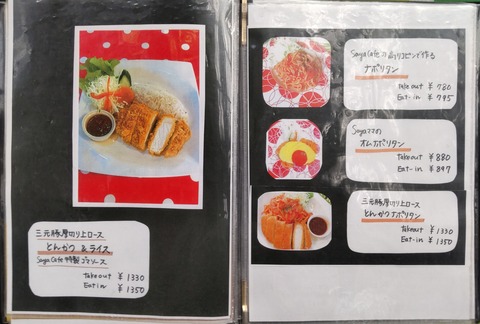 三元豚厚切り上ロース
とんかつ & ライス
Saya Cafe 特製ゴマソース
takeout ¥ 1330
Eat-in ¥ 1350
Saya Cafe の高リコピンで作る
ナポリタン
takeout ¥ 780
Eat-in ¥ 795
Sayaママの
オムナポリタン
Takeout ¥ 880
Eat-in ¥ 897
三元豚厚切り上ロース
とんかつナポリタン
takeout ¥ 1330
Eat-in ¥ 1350